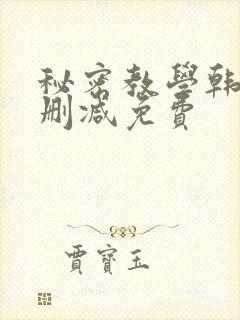 秘密教學韩
删减免費
賈寶玉